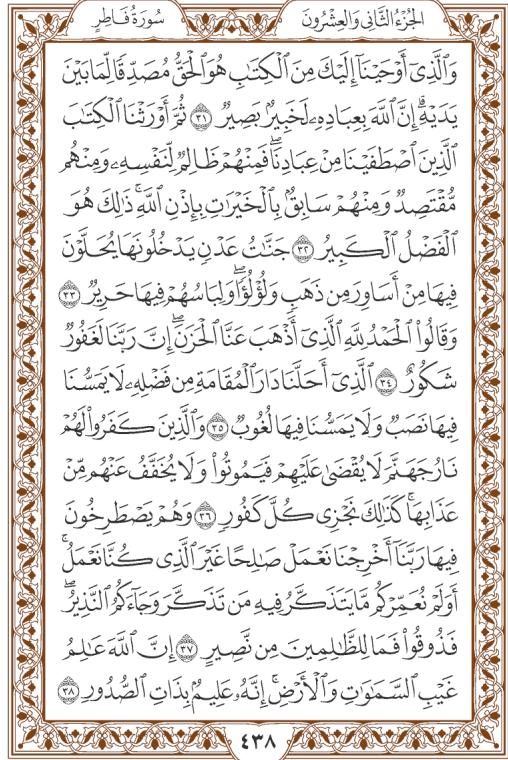 الجُزْءُ الثَّانِي وَالعِشْرُونَ
سُورَةُ فَاطِرٍ
وَالَّذِي أَوْحَيْنَا إِلَيْكَ مِنَ الْكِتَٰبِ هُوَ الْحَقُّ مُصَدِّقًا لِّمَا بَيْنَ
يَدَيْهِ ۗ إِنَّ اللَّهَ بِعِبَادِهِۦ لَخَبِيرٌۢ بَصِيرٌ ٣١ ثُمَّ أَوْرَثْنَا الْكِتَٰبَ
الَّذِينَ اصْطَفَيْنَا مِنْ عِبَادِنَا ۖ فَمِنْهُمْ ظَالِمٌ لِّنَفْسِهِۦ وَمِنْهُم
مُّقْتَصِدٌ وَمِنْهُمْ سَابِقٌۢ بِالْخَيْرَٰتِ بِإِذْنِ اللَّهِ ۚ ذَٰلِكَ هُوَ
الْفَضْلُ الْكَبِيرُ ٣٢ جَنَّٰتُ عَدْنٍ يَدْخُلُونَهَا يُحَلَّوْنَ
فِيهَا مِنْ أَسَاوِرَ مِن ذَهَبٍ وَلُؤْلُؤًا ۖ وَلِبَاسُهُمْ فِيهَا حَرِيرٌ ٣٣
وَقَالُوا۟ الْحَمْدُ لِلَّهِ الَّذِي أَذْهَبَ عَنَّا الْحَزَنَ ۖ إِنَّ رَبَّنَا لَغَفُورٌ
شَكُورٌ ٣٤ الَّذِي أَحَلَّنَا دَارَ الْمُقَامَةِ مِن فَضْلِهِۦ لَا يَمَسُّنَا
فِيهَا نَصَبٌ وَلَا يَمَسُّنَا فِيهَا لُغُوبٌ ٣٥ وَالَّذِينَ كَفَرُوا۟ لَهُمْ
نَارُ جَهَنَّمَ لَا يُقْضَىٰ عَلَيْهِمْ فَيَمُوتُوا۟ وَلَا يُخَفَّفُ عَنْهُم مِّنْ
عَذَابِهَا ۚ كَذَٰلِكَ نَجْزِي كُلَّ كَفُورٍ ٣٦ وَهُمْ يَصْطَرِخُونَ
فِيهَا رَبَّنَآ أَخْرِجْنَا نَعْمَلْ صَٰلِحًا غَيْرَ الَّذِي كُنَّا نَعْمَلُ ۚ
أَوَلَمْ نُعَمِّرْكُم مَّا يَتَذَكَّرُ فِيهِ مَن تَذَكَّرَ وَجَآءَكُمُ النَّذِيرُ ۖ
فَذُوقُوا۟ فَمَا لِلظَّٰلِمِينَ مِن نَّصِيرٍ ٣٧ إِنَّ اللَّهَ عَٰلِمُ
غَيْبِ السَّمَٰوَٰتِ وَالْأَرْضِ ۚ إِنَّهُۥ عَلِيمٌۢ بِذَاتِ الصُّدُورِ ٣٨
٤٣٨